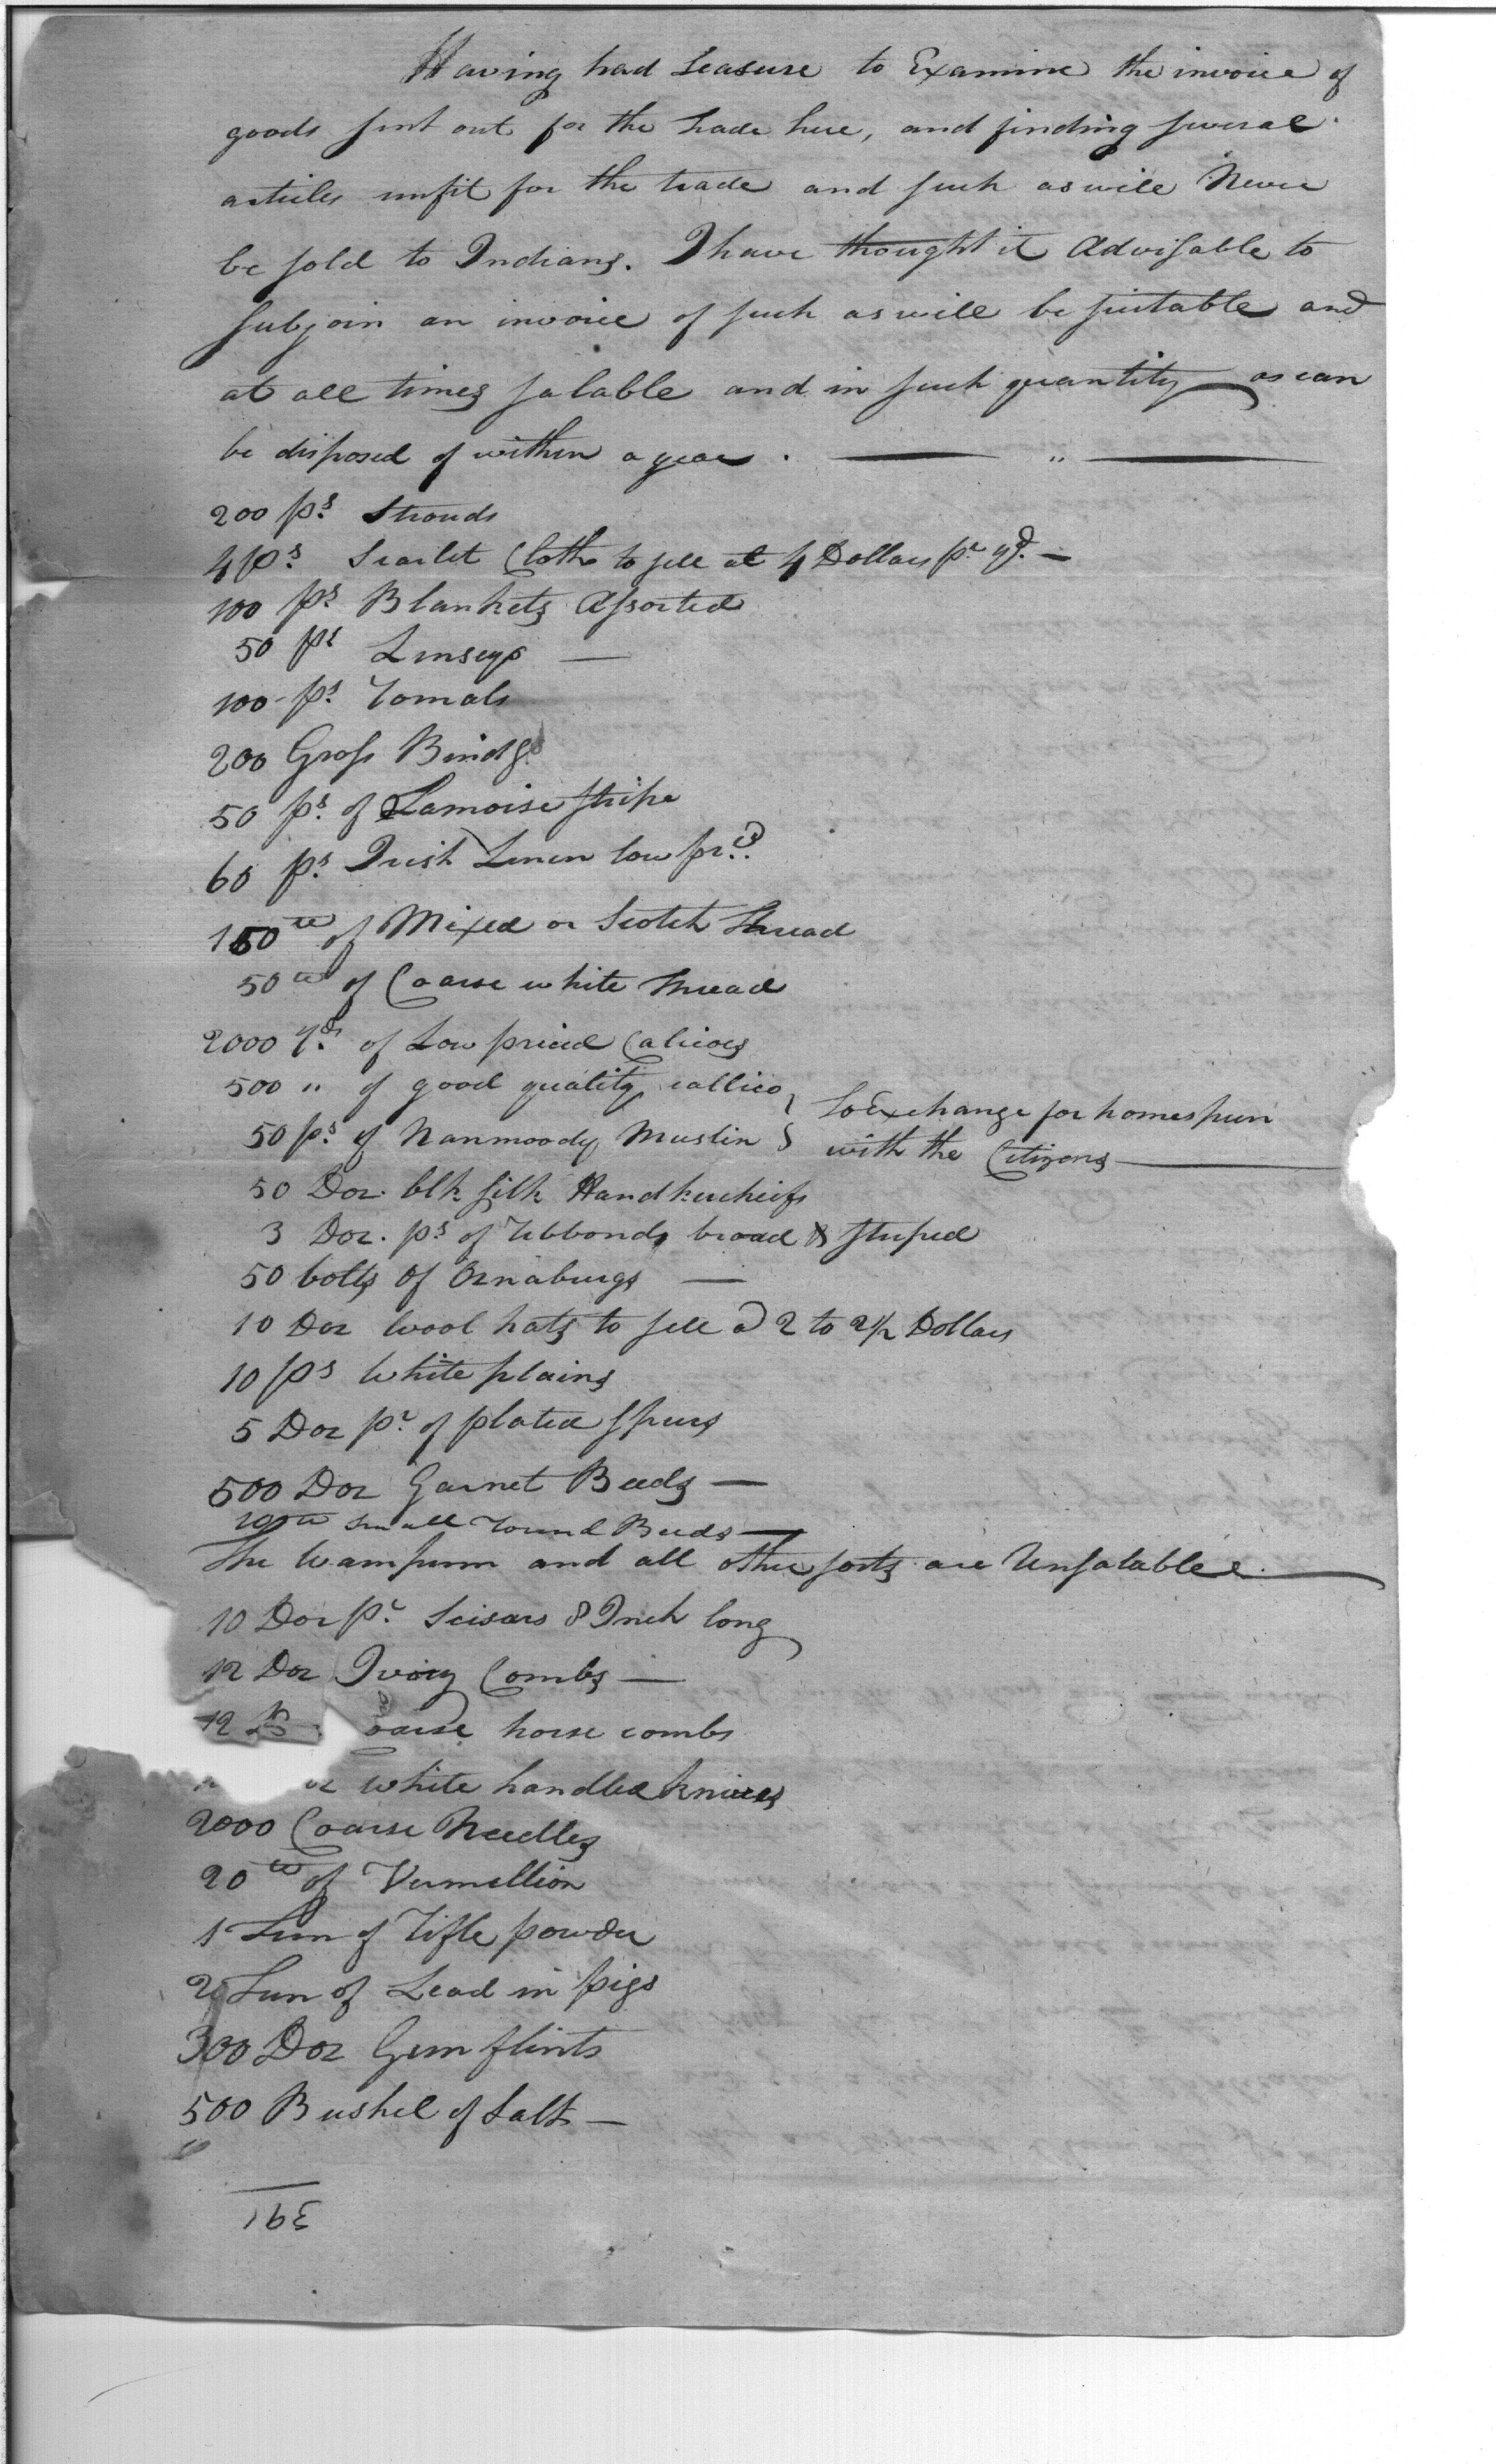 Having had Leasure to Examine the invoice of
goods sent out for the trade here, and finding several
articles unfit for the trade and such as will Never
be sold to Indians. I have thought it Advisable to
subjoin an invoice of such as will be suitable and
at all times salable and in such quantity as can
be disposed of within a year. — " —
200 ps. Strouds
4 ps. Scarlet Cloth to sell at 4 Dollars pr. yd. —
100 ps. Blankets Assorted
50 ps Linseys —
100 ps. romals
200 Gross Bindgs
50 ps. of Lamoise stripe
60 ps. Irish Linen low prd.
150 lb of Mixed or Scotch thread
50 lb of Coarse white thread
2000 yds. of Low priced Calicoes
500 " of good quality callico } to Exchange for homespun
50 ps. of Nanmoody Muslin } with the Citizens —
50 Doz. blk silk Handkercheifs
3 Doz. ps of ribbonds broad & striped
50 bolts of Oznaburgs —
10 Doz wool hats to sell @ 2 to 2½ Dollars
10 ps White plains
5 Doz pr. of plated spurs
500 Doz Garnet Beeds —
100 lb small round Beeds —
The Wampum and all other sorts are Unsalable. —
10 Doz pr. Scisars 8 Inch long
12 Doz Ivory Combs —
12 oarse horse combs
oz white handled knives
2000 Coarse Needles
20 lb of Vermellion
1 Tun of rifle powder
2 Tun of Lead in pigs
300 Doz Gun flints
500 Bushel of Salt —
391